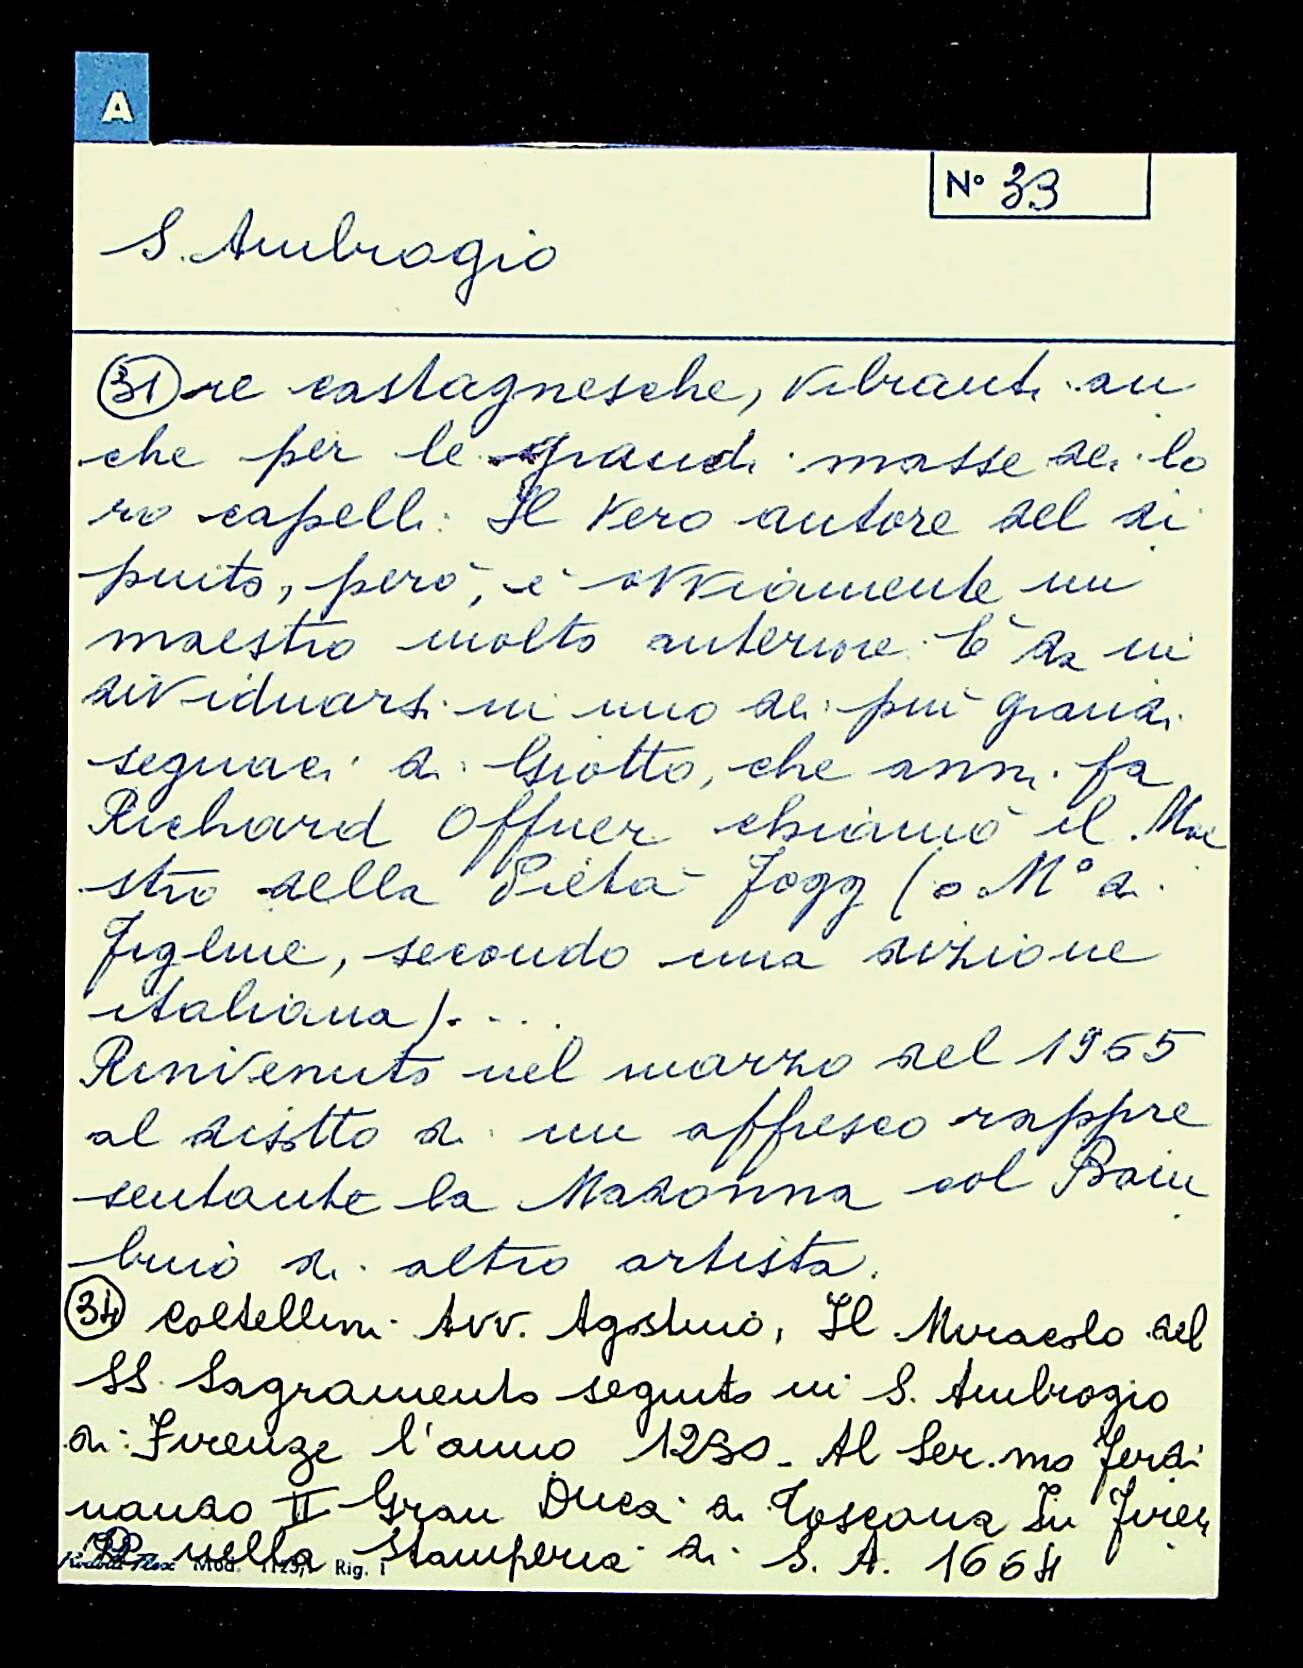 A
N° 33
S. Ambrogio
31 re castagnesche, vibranti an
che per le grandi masse dei lo
ro capelli. Il vero autore del di
pinto, però, è ovviamente un
maestro molto anteriore. È da in
dividuarsi in uno dei più grandi
seguaci di Giotto, che anni fa
Richard Offner chiamò il Mae
stro della Pietà Fogg (o M° di
Figline, secondo una dizione
italiana)....
Rinvenuto nel marzo del 1965
al disotto di un affresco rappre
sentante la Madonna col Bam
bino di altro artista.
34 Coltellini Avv. Agostino, Il Miracolo del
SS. Sagramento seguito in S. Ambrogio
di Firenze l'anno 1230. Al Ser.mo Ferdi
nando II Gran Duca di Toscana In Firen
ze nella Stamperia di S. A. 1664
Mod. Rig. 1